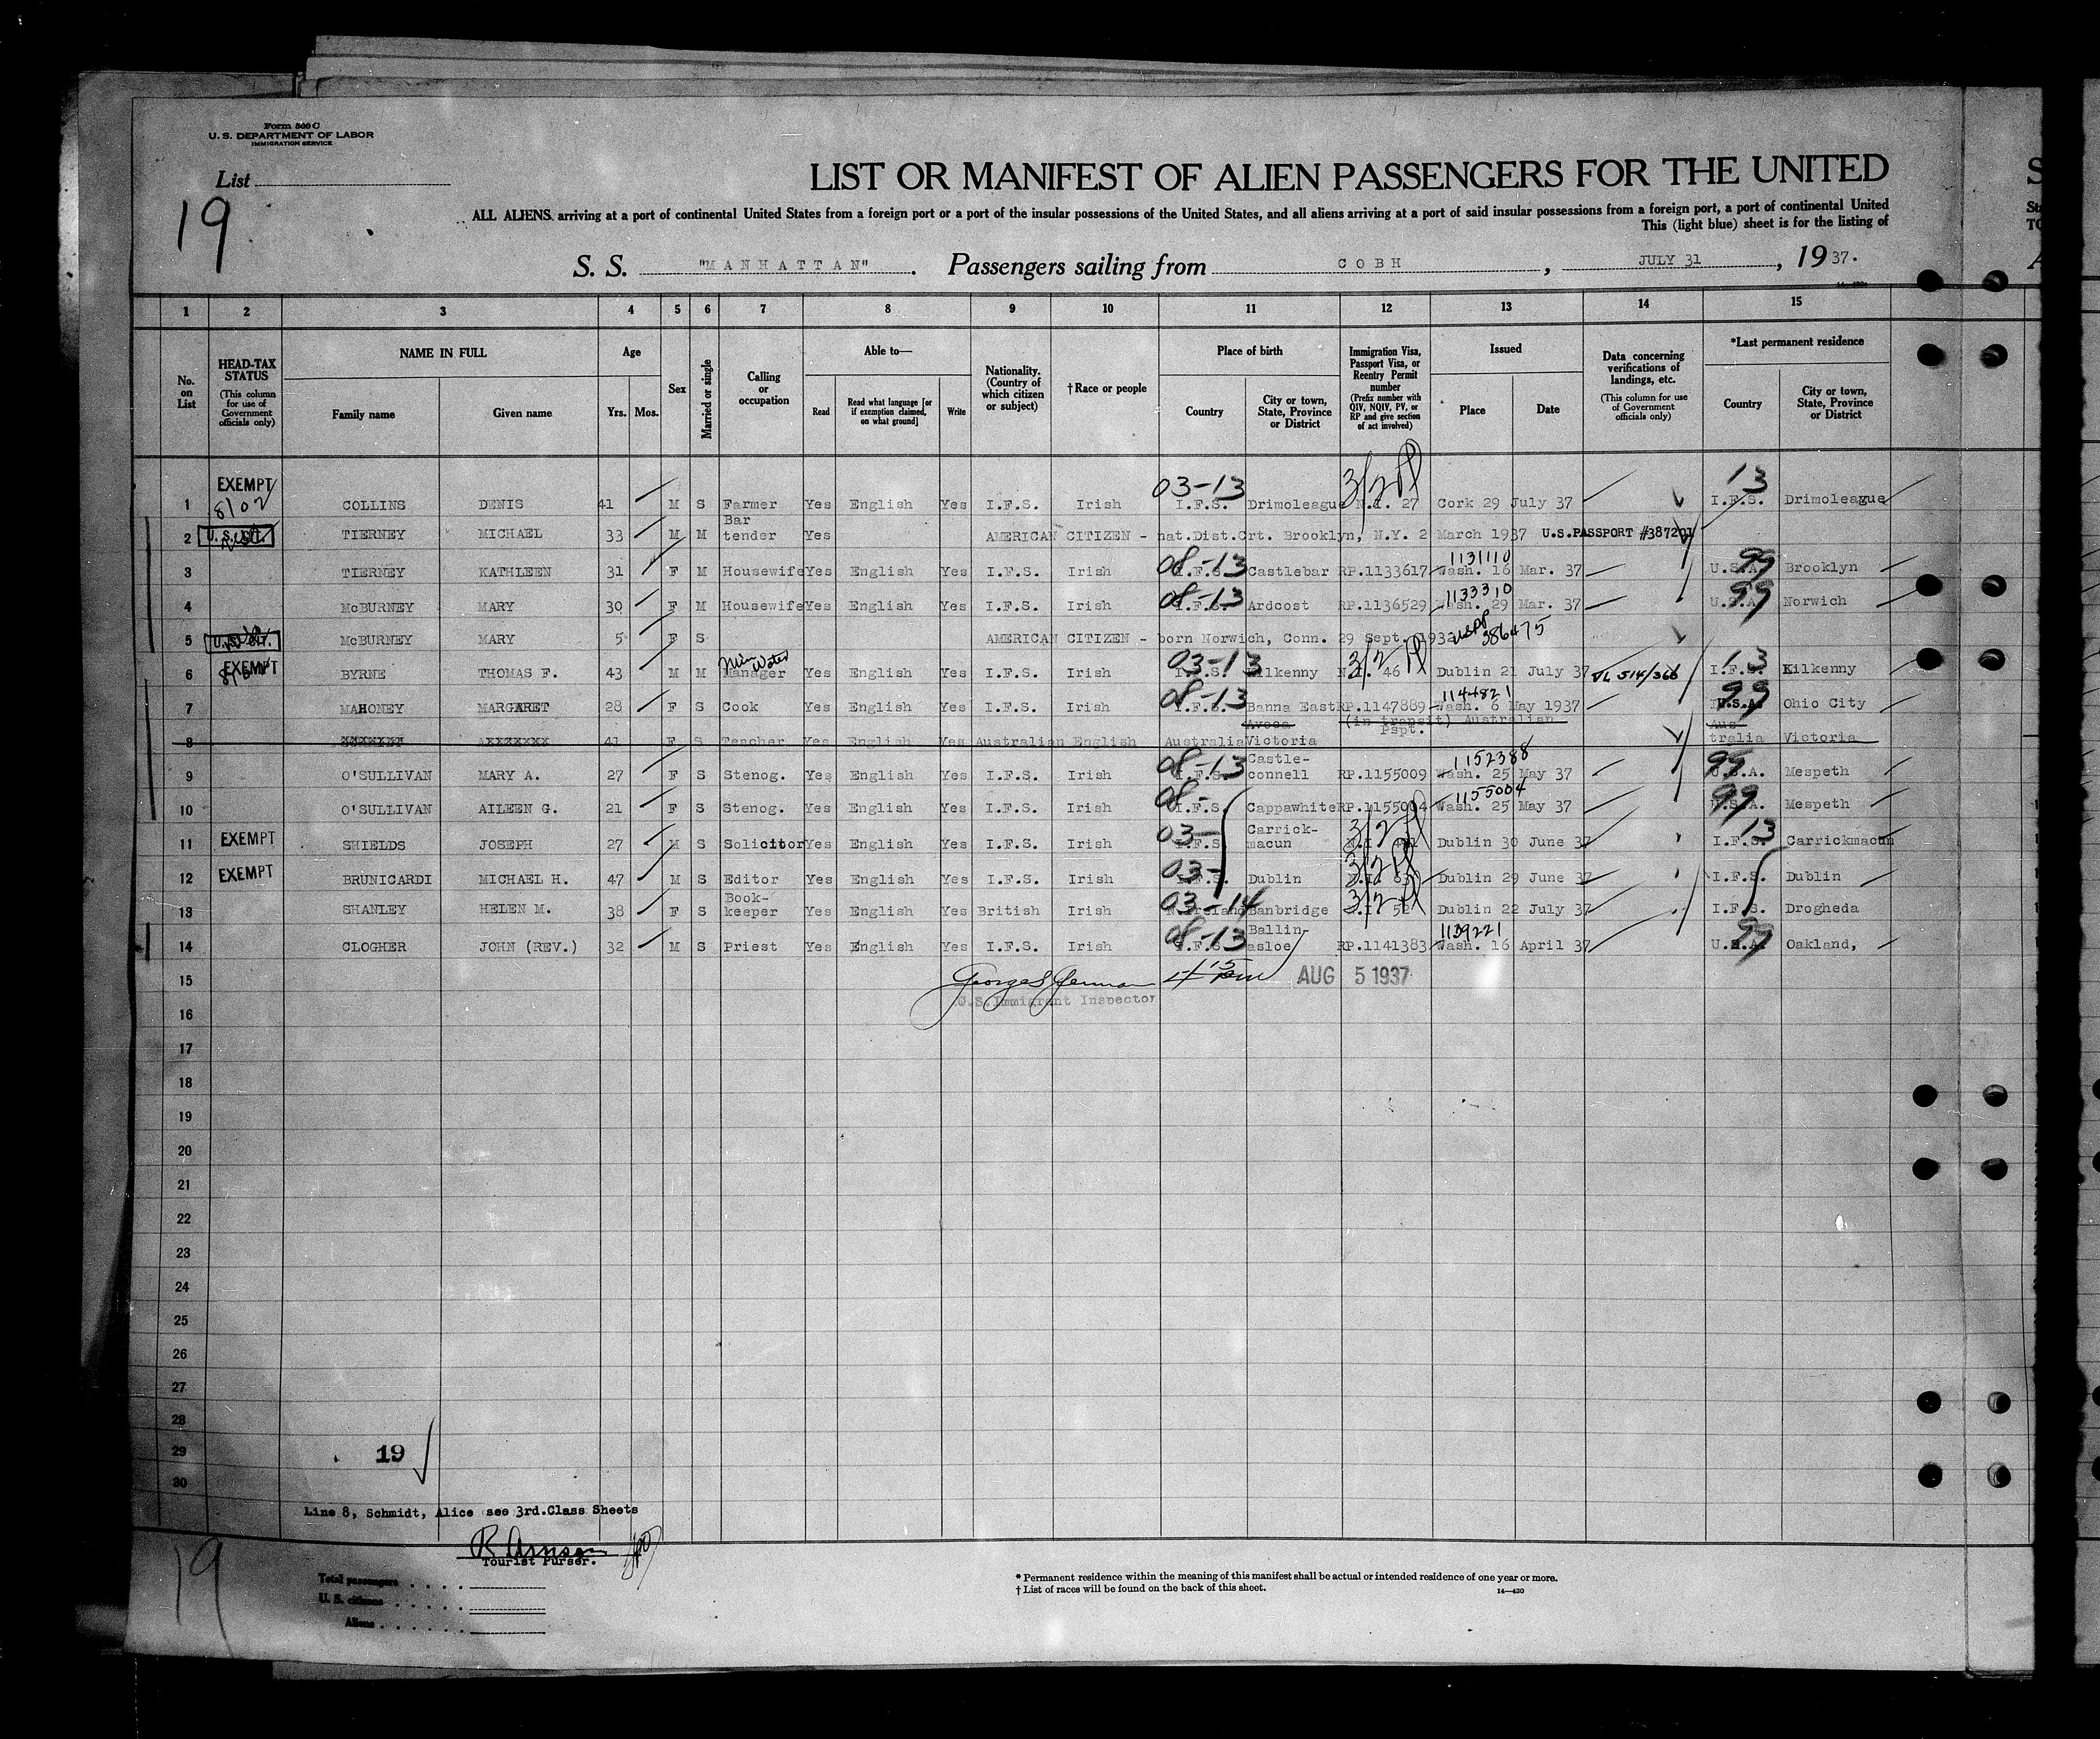 Form 500 C
U. S. DEPARTMENT OF LABOR
IMMIGRATION SERVICE
List
19
LIST OR MANIFEST OF ALIEN PASSENGERS FOR THE UNITED
ALL ALIENS arriving at a port of continental United States from a foreign port or a port of the insular possessions of the United States, and all aliens arriving at a port of said insular possessions from a foreign port, a port of continental United
This (light blue) sheet is for the listing of
S. S. "MANHATTAN" Passengers sailing from COBH, JULY 31, 1937.
1 2 3 4 5 6 7 8 9 10 11 12 13 14 15
No. on List
HEAD-TAX STATUS (This column for use of Government officials only)
NAME IN FULL Family name Given name
Age Yrs. Mos.
Sex
Married or single
Calling or occupation
Able to— Read Read what language [or if exemption claimed, on what ground] Write
Nationality. (Country of which citizen or subject)
† Race or people
Place of birth Country City or town, State, Province or District
Immigration Visa, Passport Visa, or Reentry Permit number (Prefix number with QIV, NQIV, PV, or RP and give section of act involved)
Issued Place Date
Data concerning verifications of landings, etc. (This column for use of Government officials only)
*Last permanent residence Country City or town, State, Province or District
1 EXEMPT 8/02 COLLINS DENIS 41 M S Farmer Yes English Yes I.F.S. Irish 03-13 I.F.S. Drimoleague 3/2 N.I. 27 Cork 29 July 37 13 I.F.S. Drimoleague
2 U.S. CIT. TIERNEY MICHAEL 33 M M Bar tender Yes AMERICAN CITIZEN - nat.Dist.Crt. Brooklyn, N.Y. 2 March 1937 U.S.PASSPORT #387201
3 TIERNEY KATHLEEN 31 F M Housewife Yes English Yes I.F.S. Irish 08-13 I.F.S. Castlebar RP.1133617 1131110 Wash. 16 Mar. 37 99 U.S.A. Brooklyn
4 McBURNEY MARY 30 F M Housewife Yes English Yes I.F.S. Irish 08-13 I.F.S. Ardcost RP.1136529 1133310 Wash. 29 Mar. 37 99 U.S.A. Norwich
5 U.S. CIT. McBURNEY MARY 5 F S AMERICAN CITIZEN - born Norwich, Conn. 29 Sept. 1932 USPP 386475
6 EXEMPT BYRNE THOMAS F. 43 M M Min Water Manager Yes English Yes I.F.S. Irish 03-13 I.F.S. Kilkenny 3/2 N.I. 46 Dublin 21 July 37 514/366 13 I.F.S. Kilkenny
7 MAHONEY MARGARET 28 F S Cook Yes English Yes I.F.S. Irish 08-13 I.F.S. Banna East RP.1147889 1144821 Wash. 6 May 1937 99 U.S.A. Ohio City
8 41 F S Teacher Yes English Yes Australian English Australia Avoca Victoria (in transit) Australian Pspt. Australia Victoria
9 O'SULLIVAN MARY A. 27 F S Stenog. Yes English Yes I.F.S. Irish 08-13 I.F.S. Castle-connell RP.1155009 1152388 Wash. 25 May 37 99 U.S.A. Mespeth
10 O'SULLIVAN AILEEN G. 21 F S Stenog. Yes English Yes I.F.S. Irish 08- I.F.S. Cappawhite RP.1155004 1155004 Wash. 25 May 37 99 U.S.A. Mespeth
11 EXEMPT SHIELDS JOSEPH 27 M S Solicitor Yes English Yes I.F.S. Irish 03- I.F.S. Carrick-macun 3/2 Dublin 30 June 37 13 I.F.S. Carrickmacun
12 EXEMPT BRUNICARDI MICHAEL H. 47 M S Editor Yes English Yes I.F.S. Irish 03- I.F.S. Dublin 3/2 Dublin 29 June 37 I.F.S. Dublin
13 SHANLEY HELEN M. 38 F S Book-keeper Yes English Yes British Irish 03-14 N.Ireland Banbridge 3/2 52 Dublin 22 July 37 I.F.S. Drogheda
14 CLOGHER JOHN (REV.) 32 M S Priest Yes English Yes I.F.S. Irish 08-13 I.F.S. Ballin-asloe RP.1141383 1139221 Wash. 16 April 37 99 U.S.A. Oakland,
15 AUG 5 1937
U.S. Immigrant Inspector
16
17
18
19
20
21
22
23
24
25
26
27
28
29
30
19
Line 8, Schmidt, Alice see 3rd.Class Sheets
Tourist Purser.
19
Total passengers
U. S. citizens
Aliens
* Permanent residence within the meaning of this manifest shall be actual or intended residence of one year or more.
† List of races will be found on the back of this sheet.
14—430